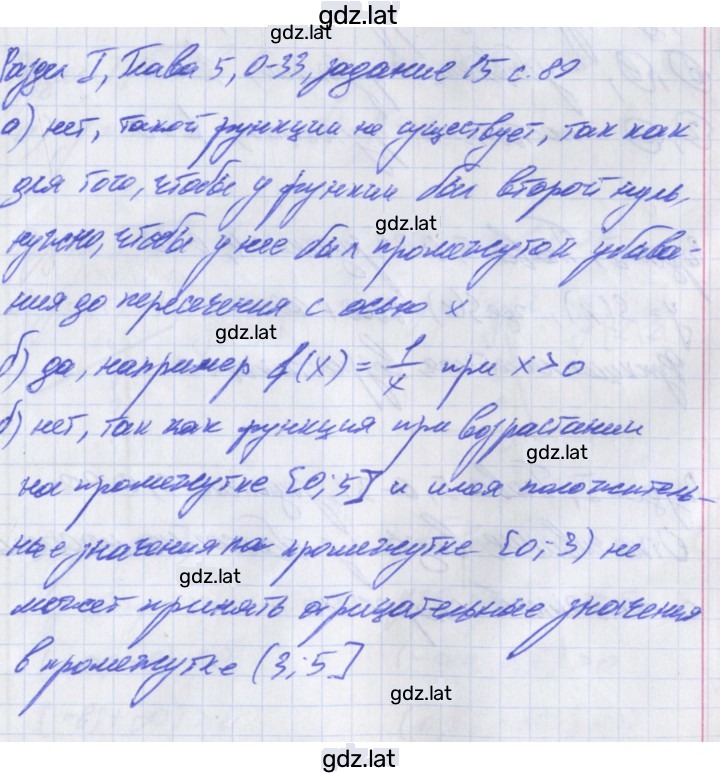 gdz.lat
gdz.lat
Раздел II, Глава 5, О-33, задание 15 с. 89
а) нет, такой функции не существует, так как
для того, чтобы у функции был второй нуль,
gdz.lat
нужно, чтобы у нее был промежуток убыва-
ния до пересечения с осью x
gdz.lat
б) да, например f(x) = 1/x при x > 0
в) нет, так как функция при возрастании
gdz.lat
на промежутке [0; 5] и имея положитель-
ные значения на промежутке [0; 3) не
gdz.lat
может принять отрицательные значения
в промежутке (3; 5]
gdz.lat
gdz.lat